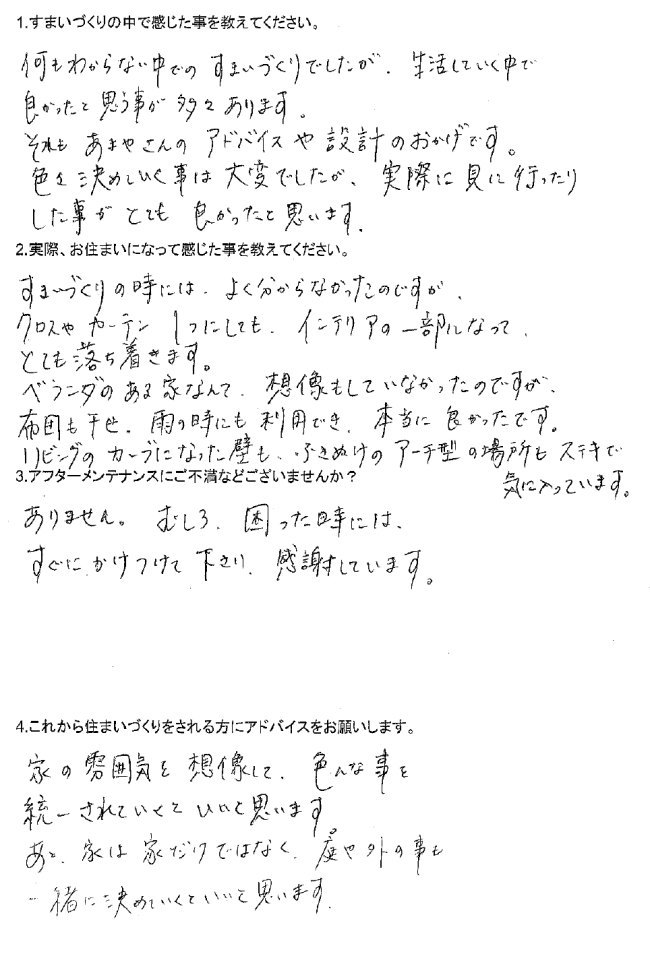 1.すまいづくりの中で感じた事を教えてください。
何もわからない中での すまいづくりでしたが、生活していく中で
良かったと思う事が多々あります。
それも あまやさんの アドバイスや設計のおかげです。
色を決めていく事は大変でしたが、実際に見に行ったり
した事がとても 良かったと思います。
2.実際、お住まいになって感じた事を教えてください。
すまいづくりの時には、よく分からなかったのですが、
クロスやカーテン 1つにしても、インテリアの一部になって、
とても落ち着きます。
ベランダのある家なんて、想像もしていなかったのですが、
布団も干せ、雨の時にも利用でき、本当に良かったです。
リビングの カーブになった壁も、ふきぬけの アーチ型の場所も ステキで
気に入っています。
3.アフターメンテナンスにご不満などございませんか？
ありません。むしろ、困った時には、
すぐに かけつけて下さり、感謝しています。
4.これから住まいづくりをされる方にアドバイスをお願いします。
家の雰囲気を想像して、色んな事を
統一されていくといいと思います
あと、家は家だけではなく、庭や外の事も
一緒に決めていくといいと思います。